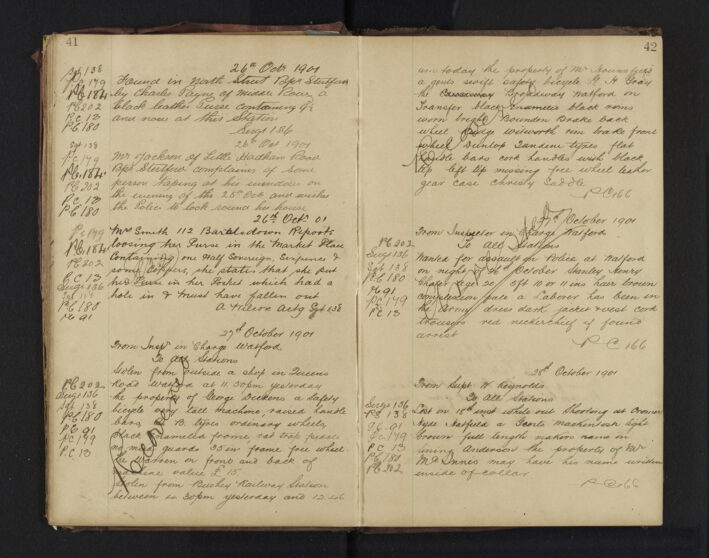 41
26th Oct 1901
Sgt 138
PC 179
PC 184
PC 202
PC 13
PC 180
Found in North Street Bps Stortford
by Charles Payne of Middle Row, a
black leather Purse containing
and now at this Station
Sergt 136
26th Oct 1901
Sgt 138
PC 179
PC 184
PC 202
PC 13
PC 180
Mr Jackson of Little Hadham Road
Bps Stortford complains of some
person tapping at his windows on
the evening of the 25th Oct and wishes
the Police to look round his house
26th Oct 01
PC 179
PC 184
PC 202
PC 13
Sergt 136
Sgt 138
PC 180
PC 91
Mrs Smith 112 Bartlesdown Reports
loosing her Purse in the Market Place
Containing one Half Sovereign, Sixpence &
some Coppers, she states that she put
her Purse in her Pocket which had a
hole in & must have fallen out
Actg Sgt 138
27th October 1901
From Insp in Charge Watford
To All Stations
PC 202
Sergt 136
Sgt 138
PC 180
PC 91
PC 179
PC 13
Stolen from outside a shop in Queens
Road Watford at 11.30pm yesterday
the property of George Dickens a safety
bicycle very tall machine, raised handle
bars B. tyres ordinary wheels,
black enamelled frame, rat trap pedals
no mud guards 35in frame free wheel
on front and back of
machine value £15
Stolen from Bushey Railway Station
between 12.30pm yesterday and 12.
42
today the property of Mr
a gents swift safety bicycle
the Broadway Watford on
Transfer black enamelled black rims
worn bright Bowden Brake back
wheel rim brake front
wheel Dunlop Tandem tyres flat
handle bars cork handles with black
tip left tip missing free wheel leather
gear case Christy Saddle
PC 166
27th October 1901
From Inspector in Charge Watford
To All Stations
PC 202
Sergt 136
Sgt 138
PC 180
PC 91
PC 179
PC 13
Wanted for assault on Police at Watford
on night of 26th October Stanley Henry
age 20 5ft 10 or 11 ins hair brown
complexion pale a Laborer has been in
the Army dress dark jacket & vest cord
trousers red neckerchief if found
arrest
PC 166
28th October 1901
From Supt W Reynolds
To All Stations
Sergt 136
PS 138
PC 91
PC 179
PC 13
PC 180
PC 202
Lost on 18th inst while out Shooting at Cromer
Hyde Hatfield a Gents mackintosh light
brown full length makers name on
lining Anderson the property of Mr
McInnes may have his name written
inside of collar
PC 166